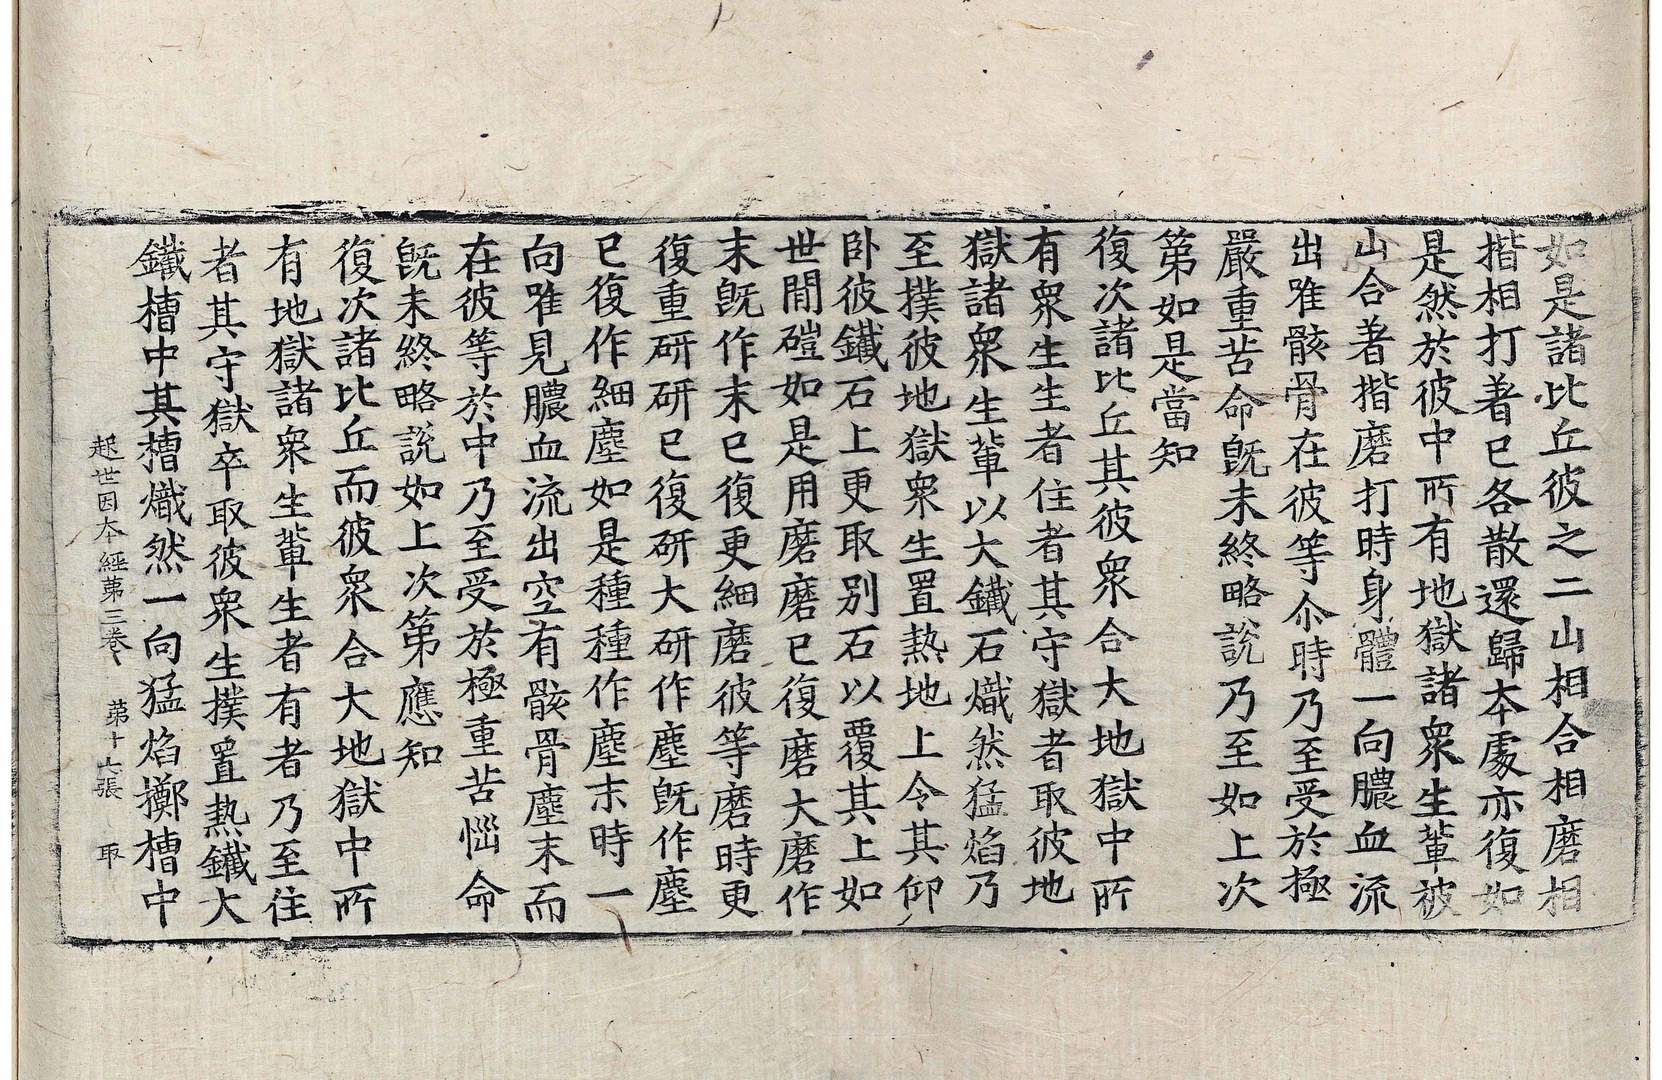 如是諸比丘彼之二山相合相磨相
揩相打著已各散還歸本處亦復如
是然於彼中所有地獄諸衆生輩被
山合著揩磨打時身體一向膿血流
出唯骸骨在彼等尒時乃至受於極
嚴重苦命旣未終略說乃至如上次
第如是當知
復次諸比丘其彼衆合大地獄中所
有衆生生者住者其守獄者取彼地
獄諸衆生輩以大鐵石熾然猛焰乃
至撲彼地獄衆生置熱地上令其仰
卧彼鐵石上更取別石以覆其上如
世閒磑如是用磨磨已復磨大磨作
末旣作末已復更細磨彼等磨時更
復重研研已復研大研作塵旣作塵
已復作細塵如是種種作塵末時一
向唯見膿血流出空有骸骨塵末而
在彼等於中乃至受於極重苦惱命
旣未終略說如上次第應知
復次諸比丘而彼衆合大地獄中所
有地獄諸衆生輩生者有者乃至住
者其守獄卒取彼衆生撲置熱鐵大
鐵槽中其槽熾然一向猛焰擲槽中
起世因本經第三卷 第十六張 取